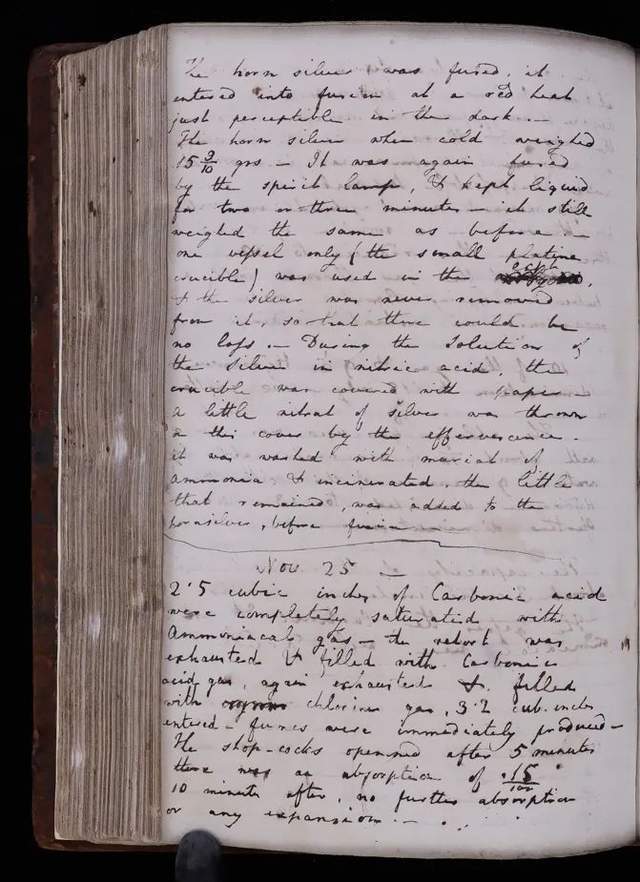 The horn silver was fused, it
entered into fusion at a red heat
just perceptible in the dark. —
The horn silver when cold weighed
15 9/10 grs — It was again fused
by the spirit lamp, & kept liquid
for two or three minutes — it still
weighed the same as before. —
one vessel only (the small platina
crucible) was used in the expt.
& the silver was never removed
from it, so that there could be
no loss. — During the solution of
the silver in nitric acid, the
crucible was covered with paper —
a little nitrat of silver was thrown
on this cover by the effervescence.
it was washed with muriat of
ammonia & incinerated, the little
that remained, was added to the
hornsilver, before fusion
Nov 25 —
2·5 cubic inches of Carbonic acid
were completely saturated with
Ammoniacal gas — the retort was
exhausted & filled with Carbonic
acid gas, again exhausted & filled
with chlorine gas, 3·2 cub. inches
entered — fumes were immediately produced —
The stop-cocks openned after 5 minutes
there was an absorption of ·15/100
10 minutes after, no further absorption
or any expansion. —